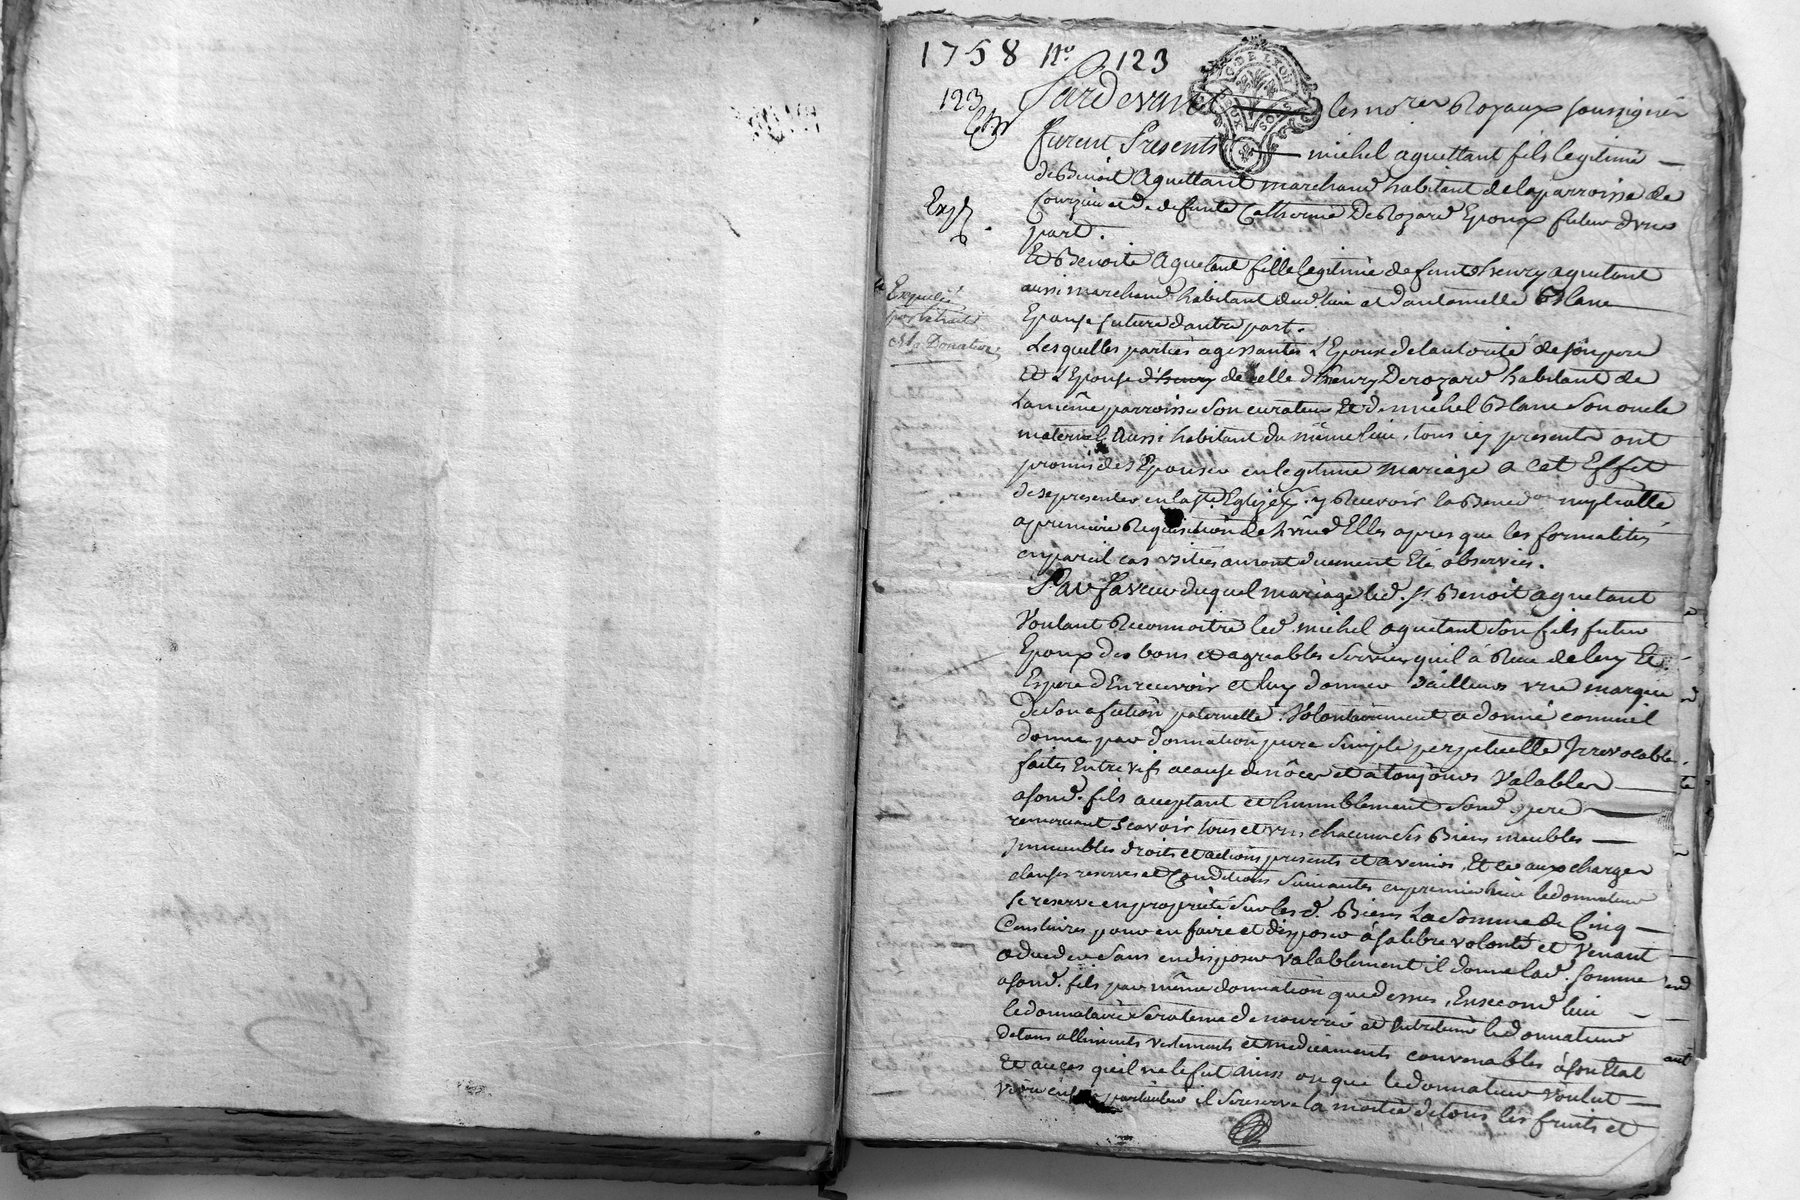 1758 No 123
123
Pardevant les no.res Royaux soussignés
furent Presents michel aquettant fils legitime
de Benoit Aquettant marchand habitant de la parroisse de
Courzieu et de defunte Catherine DeRozard Epoux futur d'vne
part.
Exp.
Et Benoite Aquetant fille legitime de funt henry aquetant
aussi marchand habitant dud. lieu et d'antoinette Blanc
Epouse future d'autre part.
Expediée
par extrait
et la Donation
Lesquelles parties agissantes L'Epoux de l'autorité de son pere
Et L'Epouse d'henry de celle d'henry Derozard habitant de
La même parroisse Son curateur Et de michel Blanc Son oncle
maternel Aussi habitant du même lieu, tous icy presents ont
promis de s'Epouser en legitime mariage a cet Effet
de se presenter en la Ste Eglize y Recevoir la Bened.on nuptialle
a premiere Requisition de l'vne d'Elles apres que les formalités
en pareil cas vsitées auront duement Eté observées.
Par faveur duquel mariage led. sr. Benoit aquetant
Voulant Reconnoitre led. michel aquetant Son fils futur
Epoux des bons et agreables Services qu'il à Reçu de luy Et
Espere d'En recevoir et luy donner d'ailleurs vne marque
de Son afection paternelle. Volontairement a donné comme il
donne par donnation pure Simple perpetuelle Irrevocable
faites Entre vifs a cause de nôces et à toujours Valables
a Sond. fils acceptant et humblement Sond. pere
remerciant Scavoir tous et vns chacuns Ses Biens meubles
Immeubles droits et actions presents et avenirs, Et ce aux charges
clauses reserves et Conditions Suivantes en premier lieu le donnateur
Se reserve en proprieté Sur lesd. Biens La Somme de Cinq
Cens livres pour en faire et disposer à Sa libre volonté et Venant
a deceder Sans en disposer valablement il donne lad. Somme
a Sond. fils par même donnation que dessus, En second lieu
le donnataire Sera tenu de nourrir et Entretenir le donnateur
de tous alliments vestements et medicaments convenables à Son Etat
Et au cas qu'il ne le fut ainsi ou que le donnateur voulut
vivre en Son particulier il Se reserve la moitié de tous les fruits et